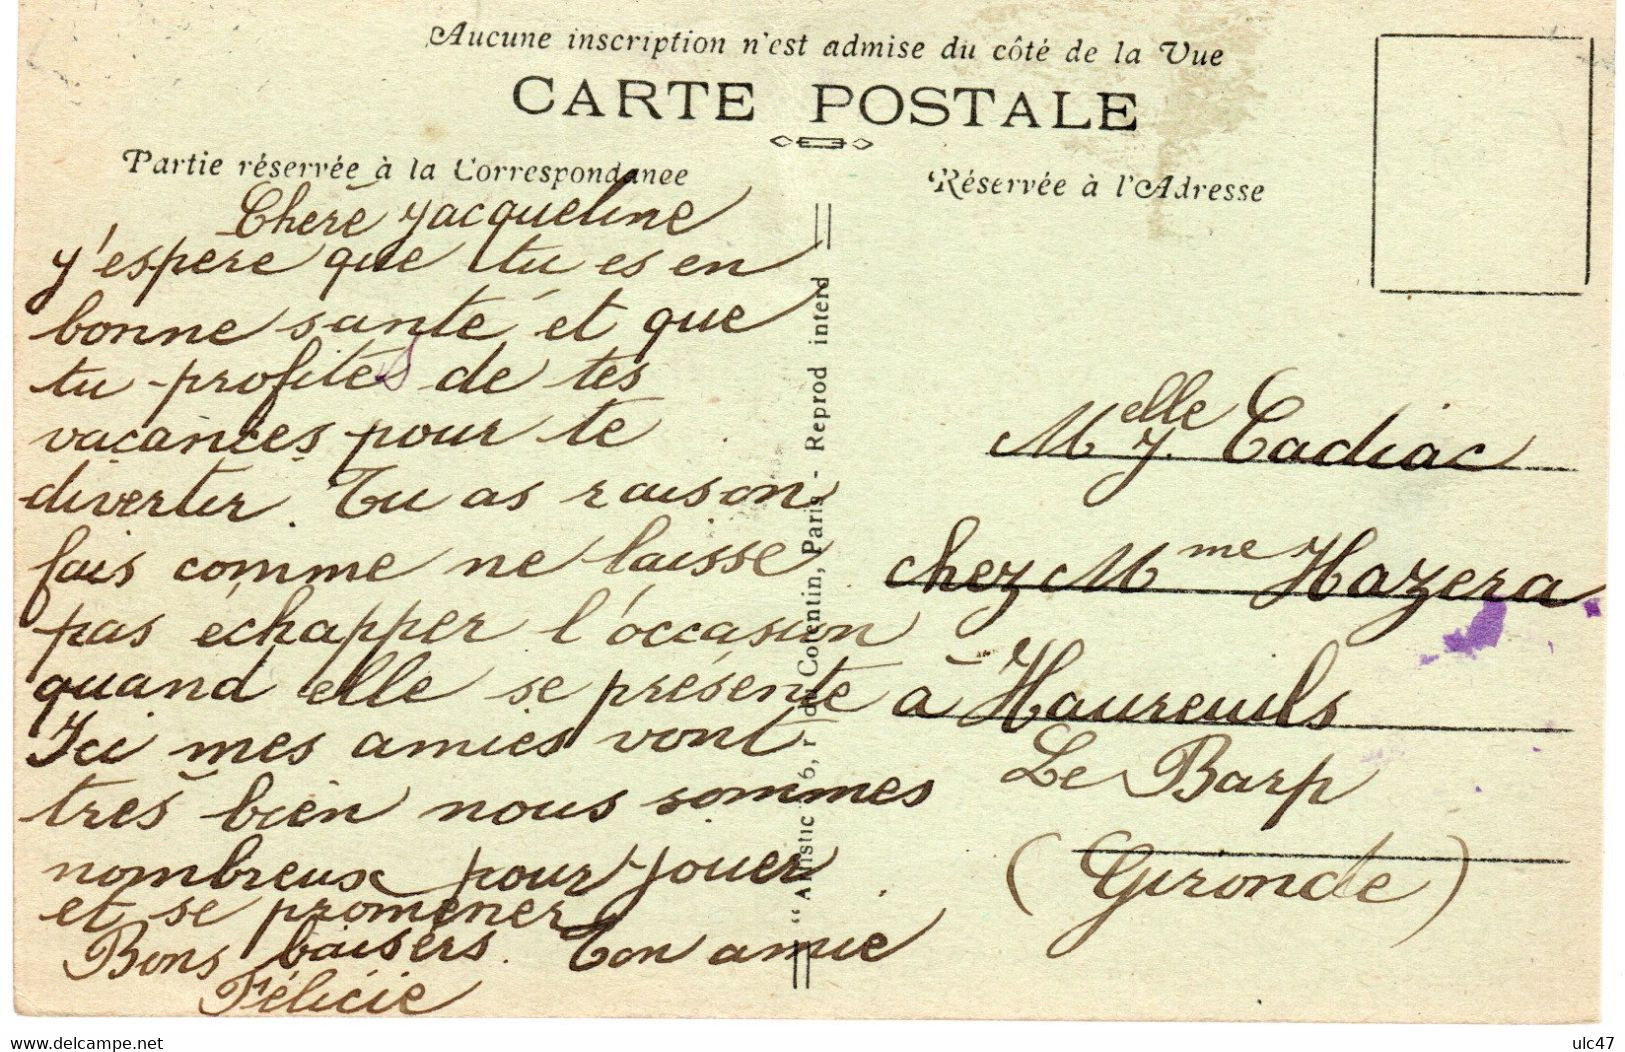 Aucune inscription n'est admise du côté de la Vue
CARTE POSTALE
Partie réservée à la Correspondance
Réservée à l'Adresse
Chère Jacqueline
J'espere que tu es en
bonne santé et que
tu profites de tes
vacances pour te
diverter. Tu as raison
fais comme ne laisse
pas échapper l'occasion
quand elle se présente
Ici mes amies vont
très bien nous sommes
nombreux pour jouer
et se promener
Bons baisers. Ton amie
Félicie
"Artistic 16, r. du Cotentin, Paris - Reprod interd
Melle J. Cadiac
chez Mme Hazera
à Haureuils
Le Barp
(Gironde)
delcampe.net
ulc47